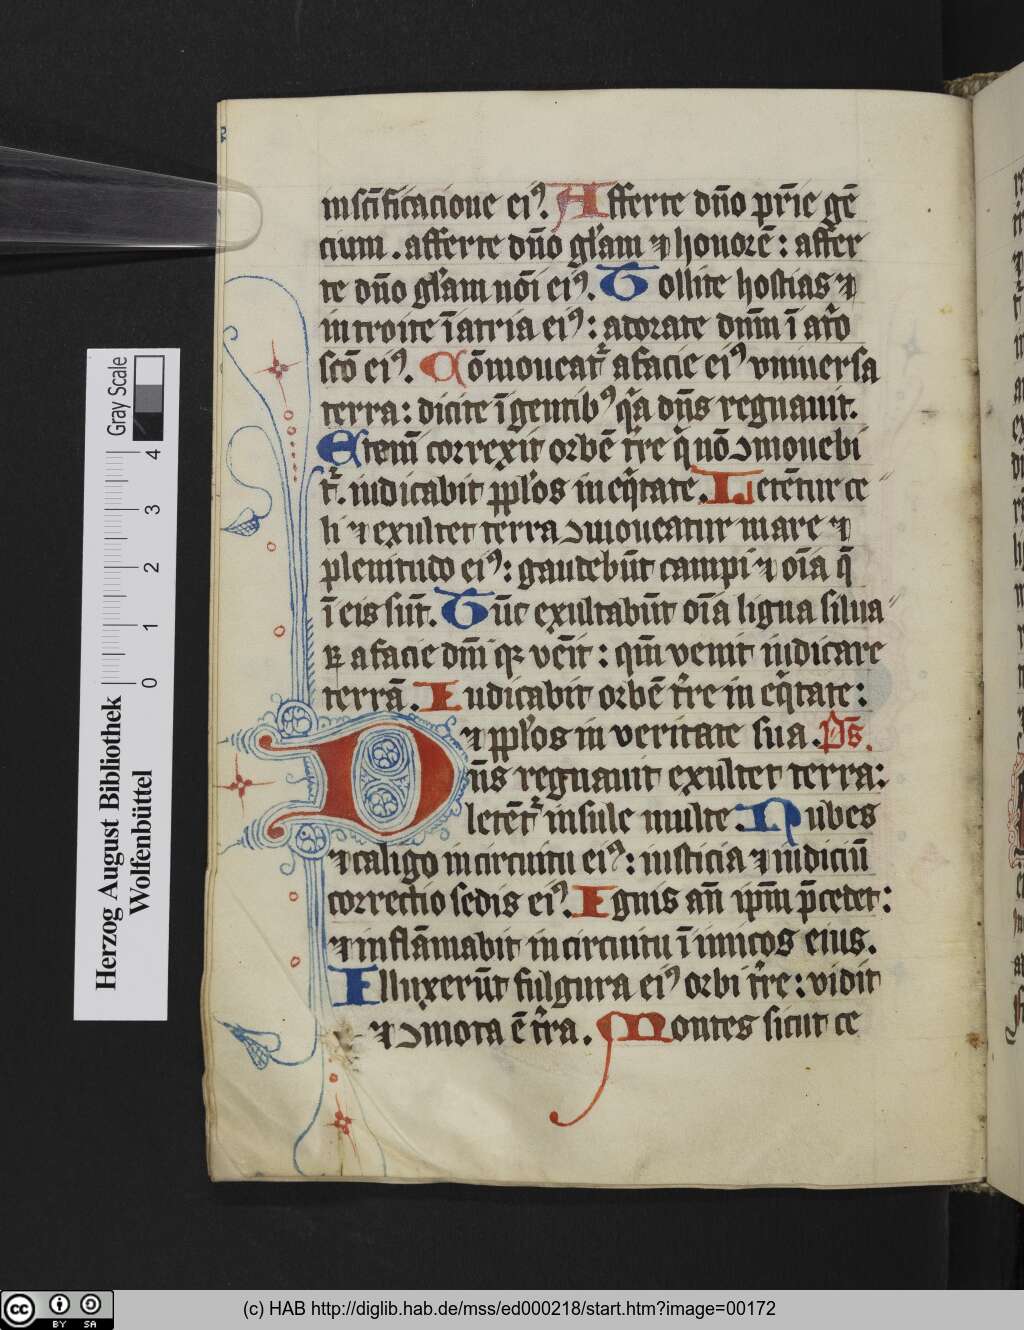 in sc̄ificacione eiꝰ. Afferte dn̄o pr̄ie gē
cium . afferte dn̄o gl̄am ⁊ honorē : affer
te dn̄o gl̄am nōi eiꝰ. Tollite hostias ⁊
introite ī atria eiꝰ : adorate dn̄m ī atͦo
sc̄o eiꝰ. Cōmoueat᷑ a facie eiꝰ vniuersa
terra : dicite ī gentibꝰ qͣa dn̄s regnauit.
Etenī correxit orbē tr̄e q̄ nō ꝯmouebi
t᷑. iudicabit ppl̄os in eq̄tate. Letēnur ce
li ⁊ exultet terra ꝯmoueatur mare ⁊
plenitudo eiꝰ : gaudebūt campi ⁊ oīa q̄
ī eis sūt. Tūc exultabūt oīa ligna silua
ꝝ a facie dn̄i qꝛ vēit : qm̄ venit iudicare
terrā. Iudicabit orbē tr̄e in eq̄tate :
⁊ ppl̄os in veritate sua . ps̄.
Dn̄s regnauit exultet terra :
letēt᷑ insule multe . Nubes
⁊ caligo in circuitu eiꝰ : iusticia ⁊ iudiciū
correctio sedis eiꝰ. Ignis an̄ ip̄m p̄cedet :
⁊ inflāmabit in circuitu īimicos eius.
Illuxerūt fulgura eiꝰ orbi tr̄e : vidit
⁊ ꝯmota ē tr̄a. Montes sicut ce
Gray Scale
0 1 2 3 4
Herzog August Bibliothek
Wolfenbüttel
(c) HAB http://diglib.hab.de/mss/ed000218/start.htm?image=00172
cc BY SA